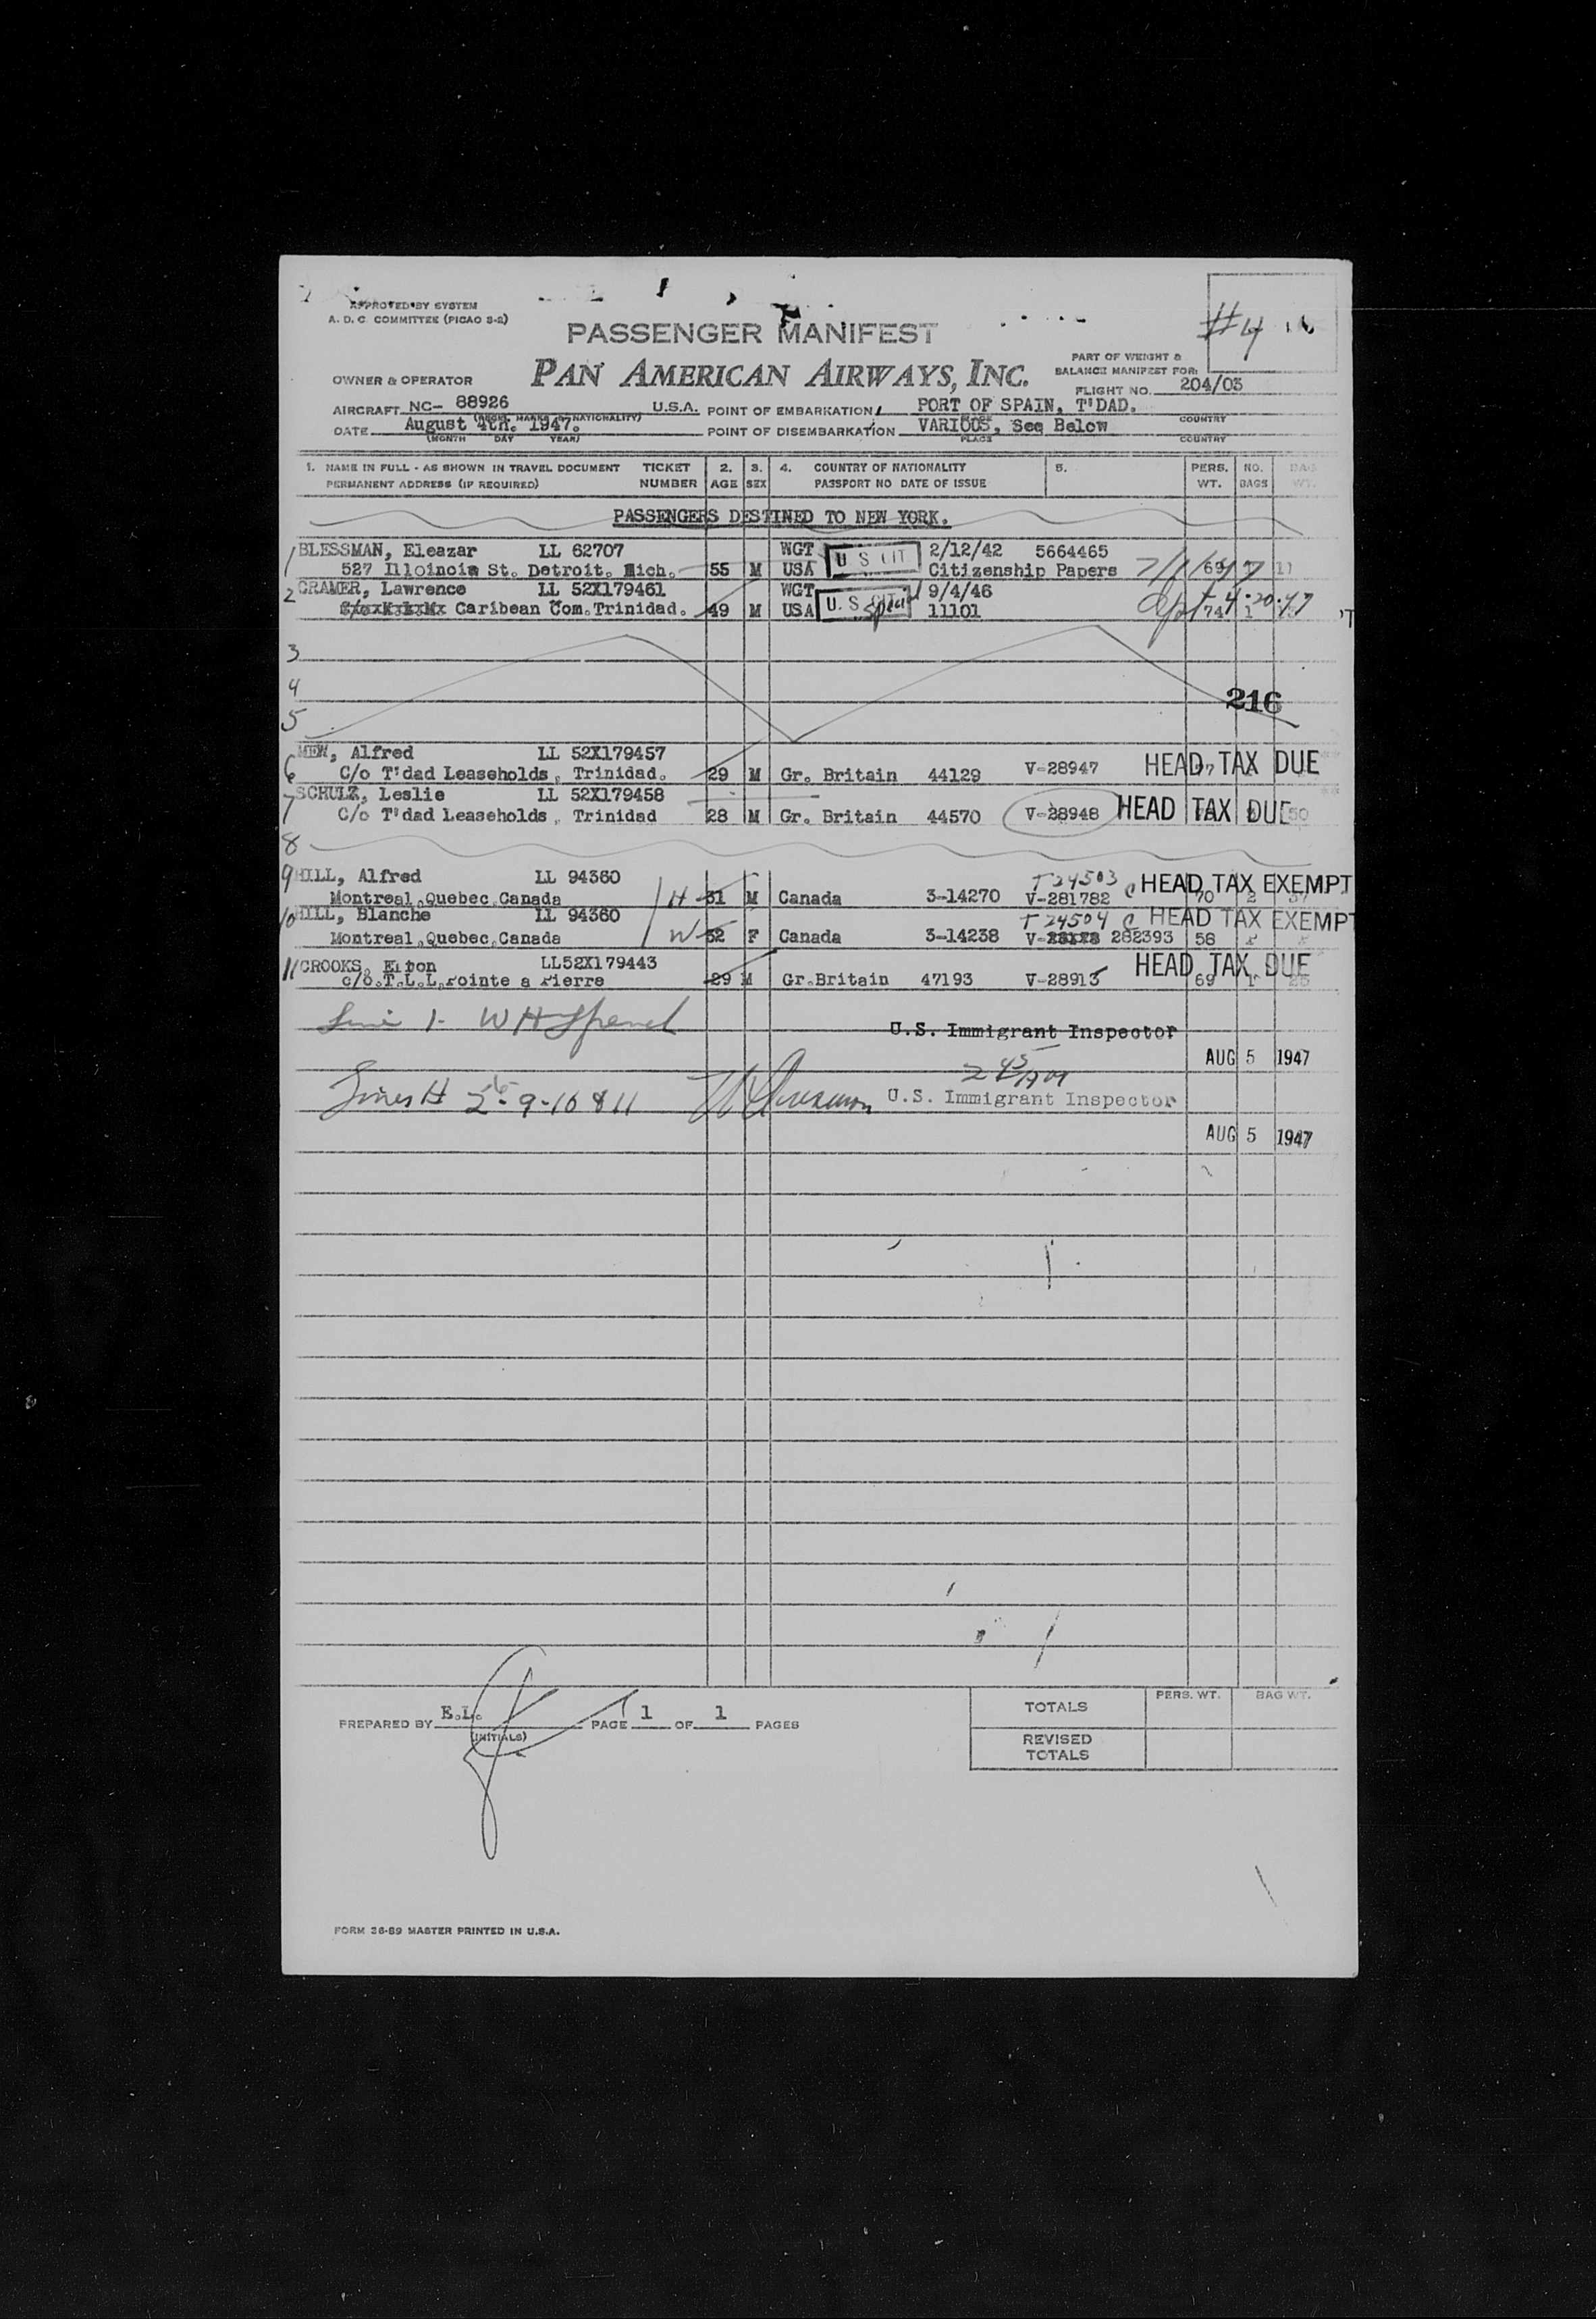 APPROVED BY SYSTEM
A. D. C. COMMITTEE (PICAO S-2)
#4
PASSENGER MANIFEST
PAN AMERICAN AIRWAYS, INC.
PART OF WEIGHT &
BALANCE MANIFEST FOR:
OWNER & OPERATOR
FLIGHT NO. 204/03
AIRCRAFT NC- 88926 U.S.A. POINT OF EMBARKATION PORT OF SPAIN, T'DAD.
(REGIS. MARKS & NATIONALITY) PLACE COUNTRY
DATE August 4th. 1947. POINT OF DISEMBARKATION VARIOUS, See Below
(MONTH DAY YEAR) PLACE COUNTRY
1. NAME IN FULL - AS SHOWN IN TRAVEL DOCUMENT TICKET 2. 3. 4. COUNTRY OF NATIONALITY 5. PERS. NO. BAG
PERMANENT ADDRESS (IF REQUIRED) NUMBER AGE SEX PASSPORT NO DATE OF ISSUE WT. BAGS WT.
PASSENGERS DESTINED TO NEW YORK.
1 BLESSMAN, Eleazar LL 62707 WGT U S CIT 2/12/42 5664465
527 Illoinois St. Detroit. Mich. 55 M USA Citizenship Papers 69
2 CRAMER, Lawrence LL 52X179461 WGT U. S. CIT 9/4/46
Caribean Com. Trinidad. 49 M USA 11101 74 1
3
4
216
5
6 MEW, Alfred LL 52X179457
C/o T'dad Leaseholds, Trinidad. 29 M Gr. Britain 44129 V-28947 HEAD TAX DUE
7 SCHULZ, Leslie LL 52X179458
C/o T'dad Leaseholds, Trinidad 28 M Gr. Britain 44570 V-28948 HEAD TAX DUE 50
8
9 HILL, Alfred LL 94360 T 24503 C HEAD TAX EXEMPT
Montreal, Quebec, Canada H 31 M Canada 3-14270 V-281782 70 2 37
10 HILL, Blanche LL 94360 T 24504 C HEAD TAX EXEMPT
Montreal, Quebec, Canada W 32 F Canada 3-14238 V- 282393 56
11 CROOKS, Elton LL52X179443 HEAD TAX DUE
c/o.T.L.L.Pointe a Pierre 29 M Gr.Britain 47193 V-28913 69 1 25
Line 1- W H U.S. Immigrant Inspector
AUG 5 1947
Lines 2-9-10 & 11 U.S. Immigrant Inspector
AUG 5 1947
TOTALS PERS. WT. BAG WT.
PREPARED BY E.L. PAGE 1 OF 1 PAGES
(INITIALS)
REVISED
TOTALS
FORM 36-89 MASTER PRINTED IN U.S.A.